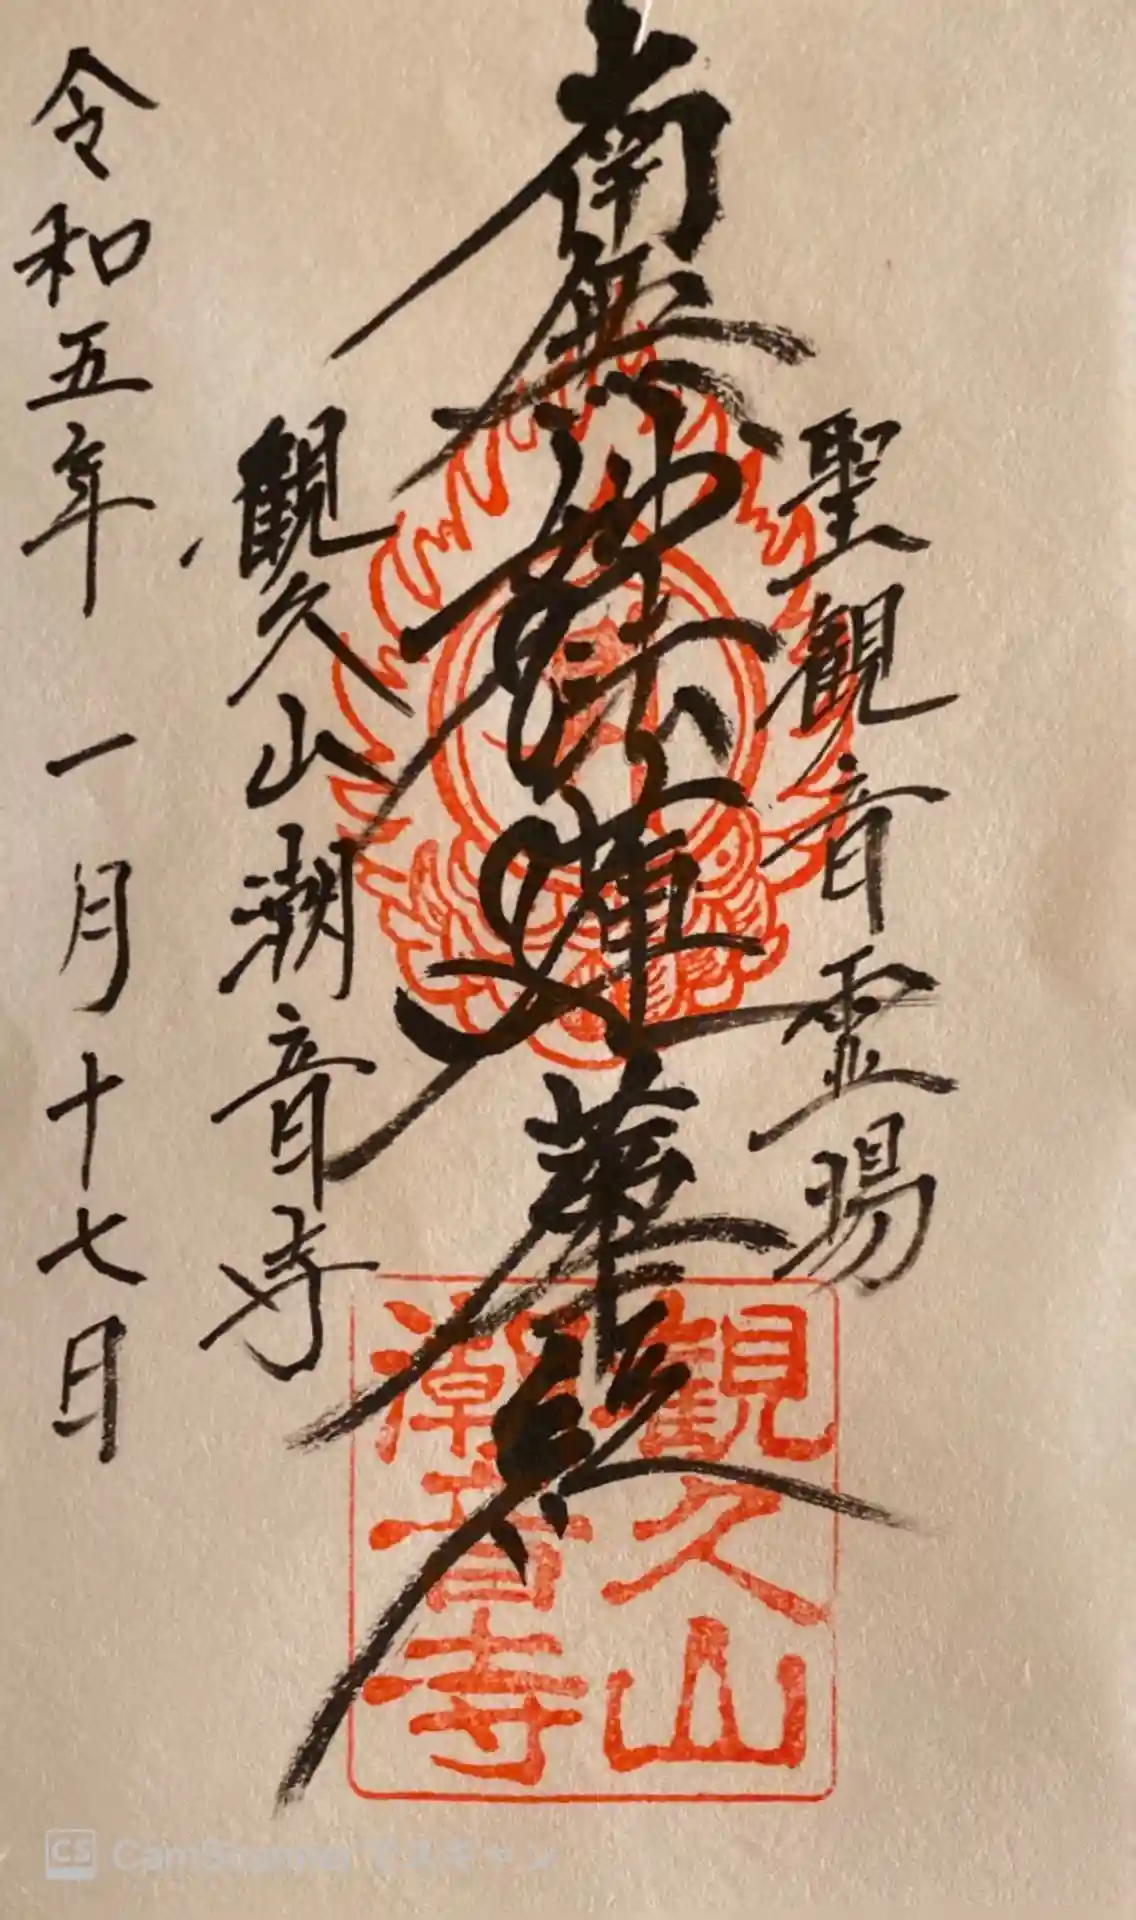 聖観音霊場
南無妙法蓮華経
観久山潮音寺
令和五年一月十七日
観久山
潮音寺
CS CamScanner でスキャン